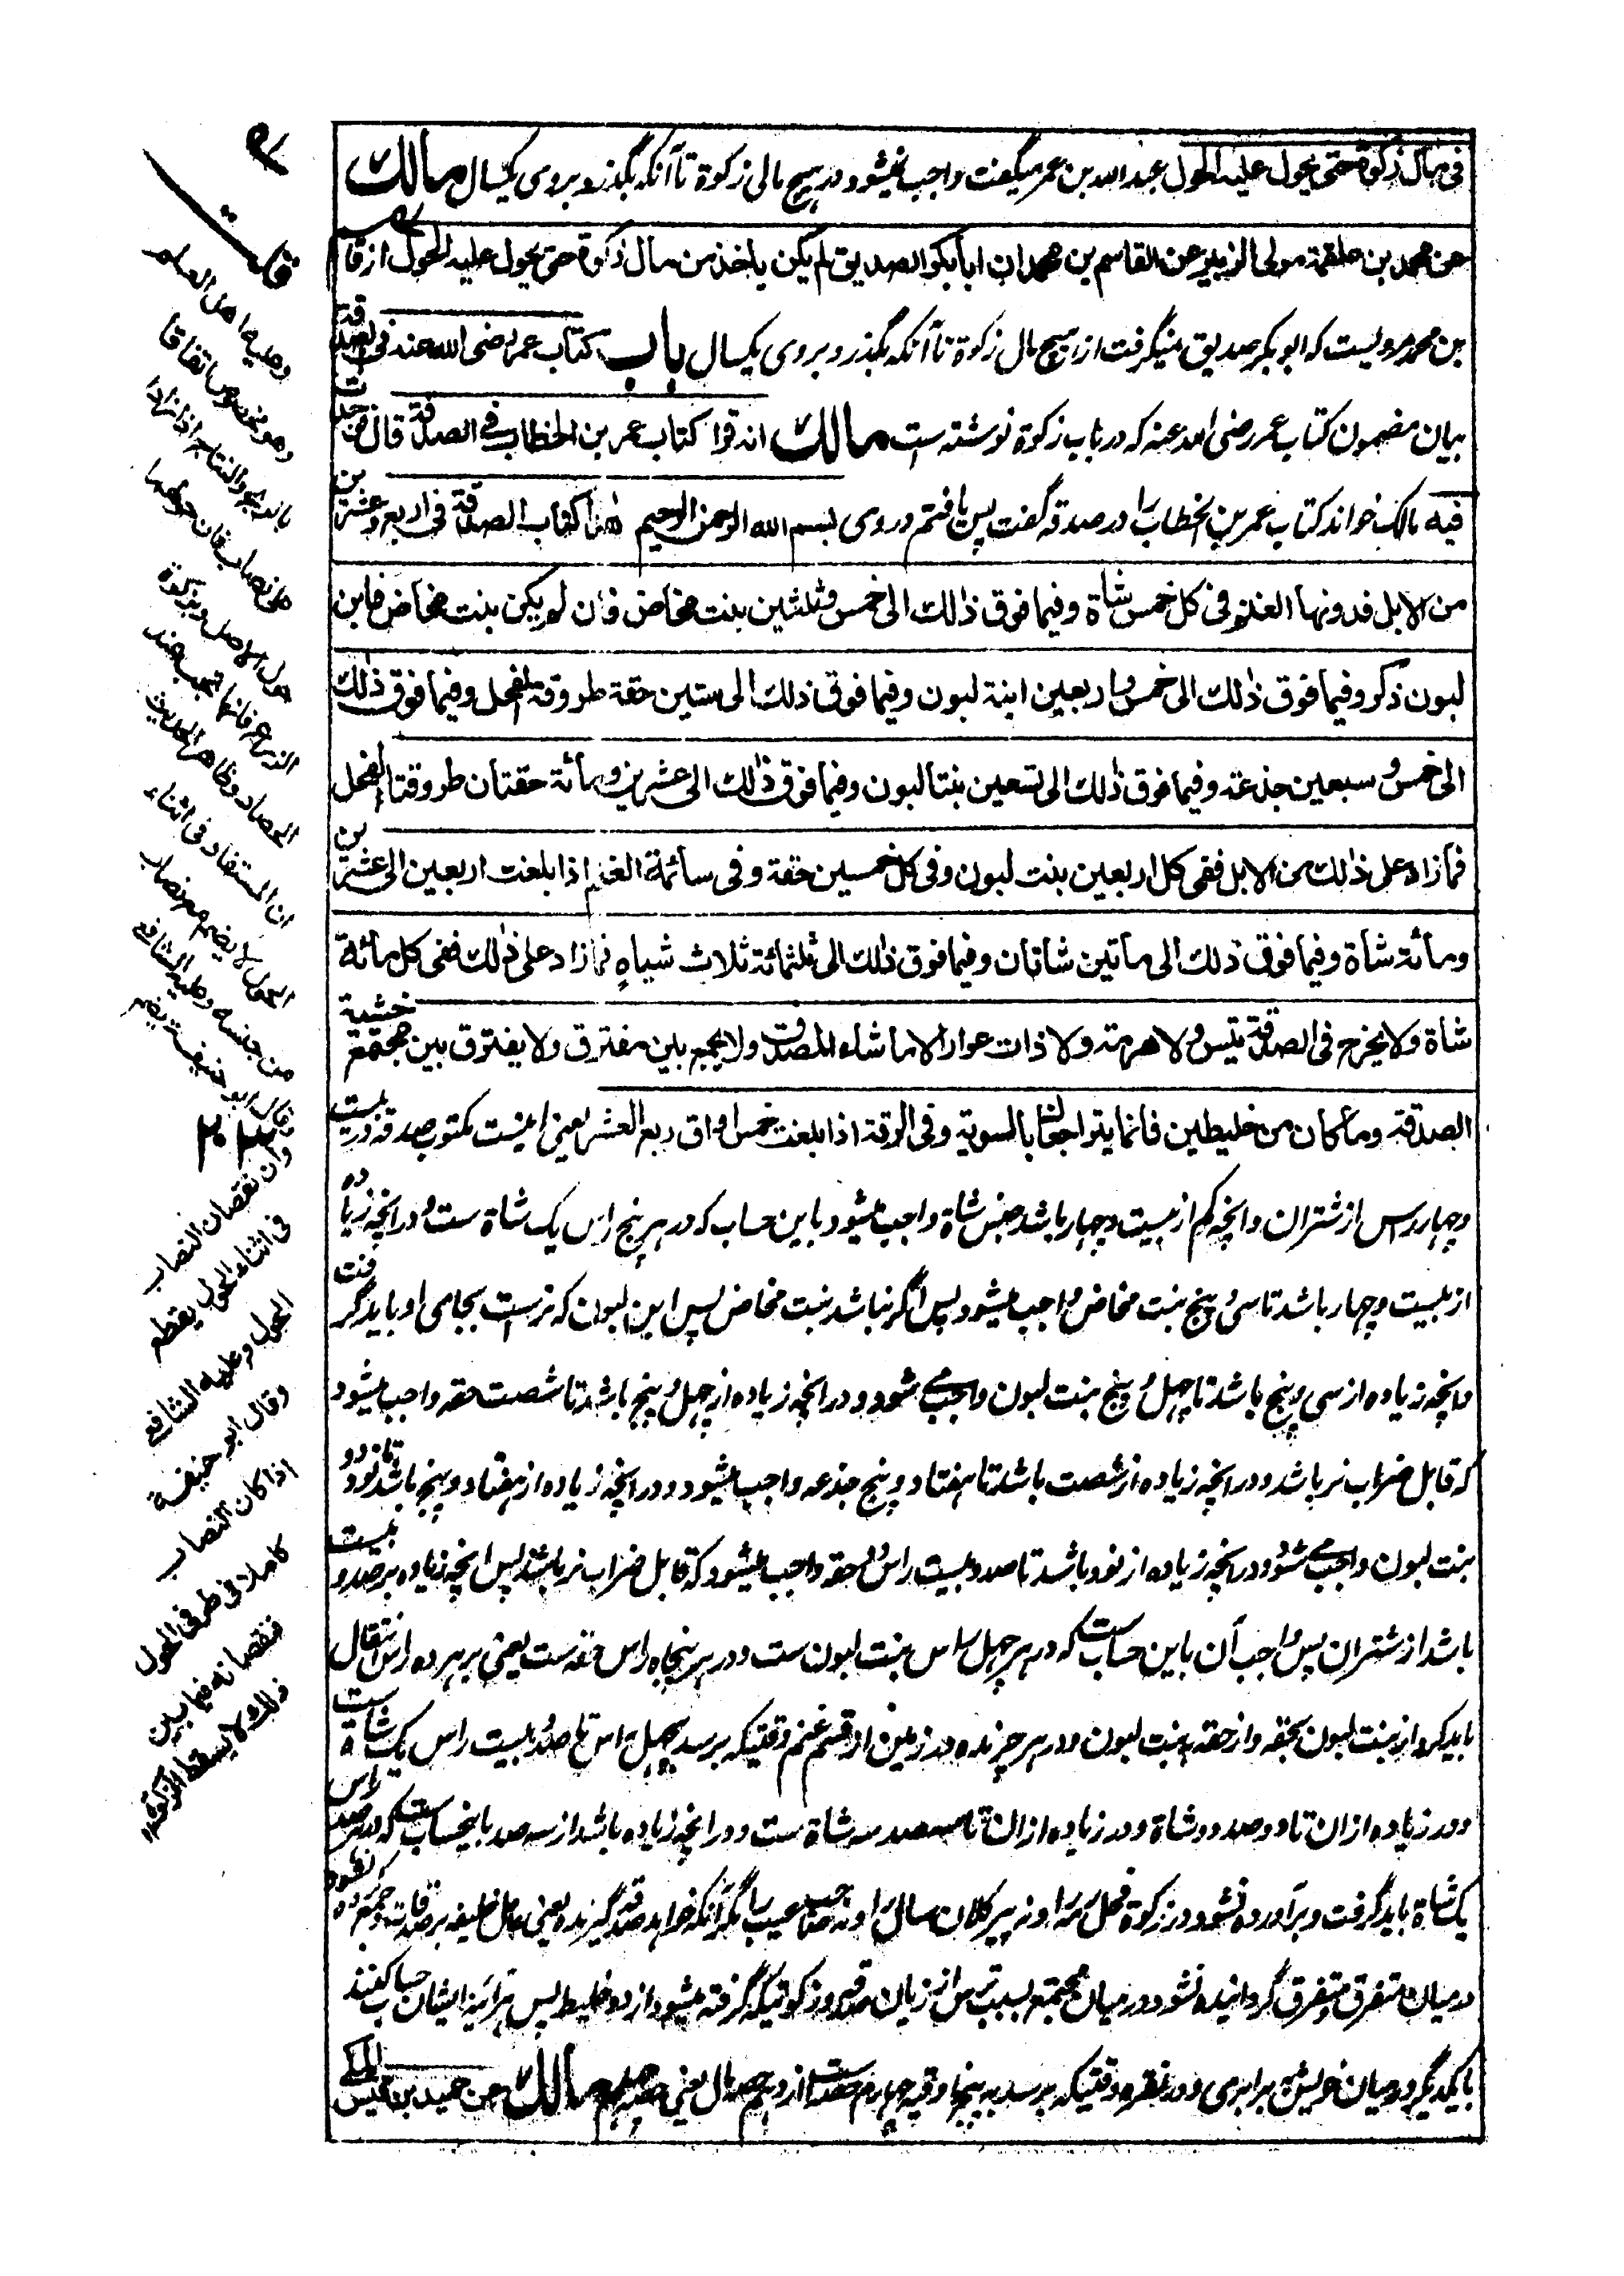 فی مال زکوة حتی یحول علیه الحول عبد الله بن عمر میگفت واجب نمیشود در هیچ مالی زکوة تا آنکه بگذرد بروی یکسال مالك
عن محمد بن عقبة مولی الزبیر عن القاسم بن محمد ان ابا بکر الصدیق لم یکن یاخذ من مال زکوة حتی یحول علیه الحول از قاسم
بن محمد مرویست که ابوبکر صدیق نمیگرفت از هیچ مال زکوة تا آنکه بگذرد بروی یکسال باب کتاب عمر رضی الله عنه فی الصدقة
بیان مضمون کتاب عمر رضی الله عنه که در باب زکوة نوشته است مالك انه قرا کتاب عمر بن الخطاب فی الصدقة قال فوجدت
فیه مالک خواند کتاب عمر بن الخطاب را در صدقه گفت پس یافتم در وی بسم الله الرحمن الرحیم هذا کتاب الصدقة فی اربع وعشرین
من الابل فدونها الغنم فی کل خمس شاة وفیما فوق ذالك الی خمس وثلثین بنت مخاض فان لم یکن بنت مخاض فابن
لبون ذکر وفیما فوق ذلك الی خمس واربعین ابنة لبون وفیما فوق ذلك الی ستین حقة طروقة الفحل وفیما فوق ذلك
الی خمس و سبعین جذعة وفیما فوق ذلك الی تسعین بنتا لبون وفیما فوق ذلك الی عشرین ومائة حقتان طروقتا الفحل
فما زاد علی ذالك من الابل ففی کل اربعین بنت لبون وفی کل خمسین حقة وفی سائمة الغنم اذا بلغت اربعین الی عشرین
ومائة شاة وفیما فوق ذلك الی مأتین شاتان وفیما فوق ذلك الی ثلثمائة ثلاث شیاه فما زاد علی ذلك ففی کل مائة
شاة ولا یخرج فی الصدقة تیس ولا هرمة ولا ذات عوار الا ما شاء المصدق ولا یجمع بین مفترق ولا یفترق بین مجتمع خشیة
الصدقة وما کان من خلیطین فانما یتراجعان بالسویة وفی الرقة اذا بلغت خمس اواق ربع العشر یعنی اینست مکتوب صدقه در بیست
وچهار راس از شتران وانچه کم از بیست وچهار باشد جنس شاة واجب میشود باین حساب که در هر پنج راس یک شاة ست و در انچه زیاده
از بیست وچهار باشد تا سی و پنج بنت مخاض واجب میشود پس اگر نباشد بنت مخاض پس ابن لبون که نر ست بجای او باید گرفت
وانچه زیاده از سی و پنج باشد تا چهل و پنج بنت لبون واجب می شود و در انچه زیاده از چهل و پنج باشد تا شصت حقه واجب میشود
که قابل ضراب نر باشد و در انچه زیاده از شصت باشد تا هفتاد و پنج جذعه واجب میشود و در انچه زیاده از هفتاد و پنج باشد تا نود دو
بنت لبون واجب می شود و در انچه زیاده از نود باشد تا صد و بیست راس دو حقه واجب میشود که قابل ضراب نر باشند پس انچه زیاده بر صد و بیست
باشد از شتران پس واجب آن باین حساب ست که در هر چهل راس بنت لبون ست و در هر پنجاه راس حقه ست یعنی بر هر ده راس انتقال
باید کرد از بنت لبون بحقه و از حقه به بنت لبون و در هر چرنده در زمین از قسم غنم وقتیکه برسد بچهل راس تا صد و بیست راس یک شاة ست
و در زیاده ازان تا دو صد دو شاة و در زیاده ازان تا سه صد سه شاة ست و در انچه زیاده باشد از سه صد باینحساب ست که در هر صد راس
یک شاة باید گرفت و برآورده نشود در زکوة فحل رمه را و نه پیر کلان سال را و نه صاحب عیب را مگر آنکه خواهد صدقه گیرنده یعنی عامل خلیفه بر صدقات و جمع کرده نشود
در میان متفرق و متفرق گردانیده نشود در میان مجتمع بسبب ترس از زیان صدقه و زکوتیکه گرفته میشود از دو خلیط پس هر آئینه ایشان حساب کنند
با یکدیگر در میان خویش برابری و در نقره وقتیکه برسد به پنج اوقیه چهارم حصه ست از دهم حصه مال یعنی حصه چهلم مالك عن حمید بن قیس المکی
قلت
وعلیه اهل العلم
وهو مخصوص اتفاقا
بالربح والنتاج اذا زادا
علی نصاب فان حولهما
حول الاصل وبزکوة
الزرع فانها تجب عند
الحصاد وظاهر الحدیث
ان المستفاد فی اثناء
الحول لا یضم مع نصاب
من جنسه وعلیه الشافعی
وقال ابو حنیفة یضم
وان نقصان النصاب
فی اثناء الحول یقطع
الحول وعلیه الشافعی
وقال ابو حنیفة
اذا کان النصاب
کاملا فی طرفی الحول
فنقصانه فیما بین
ذلك لا یسقط الزکوة